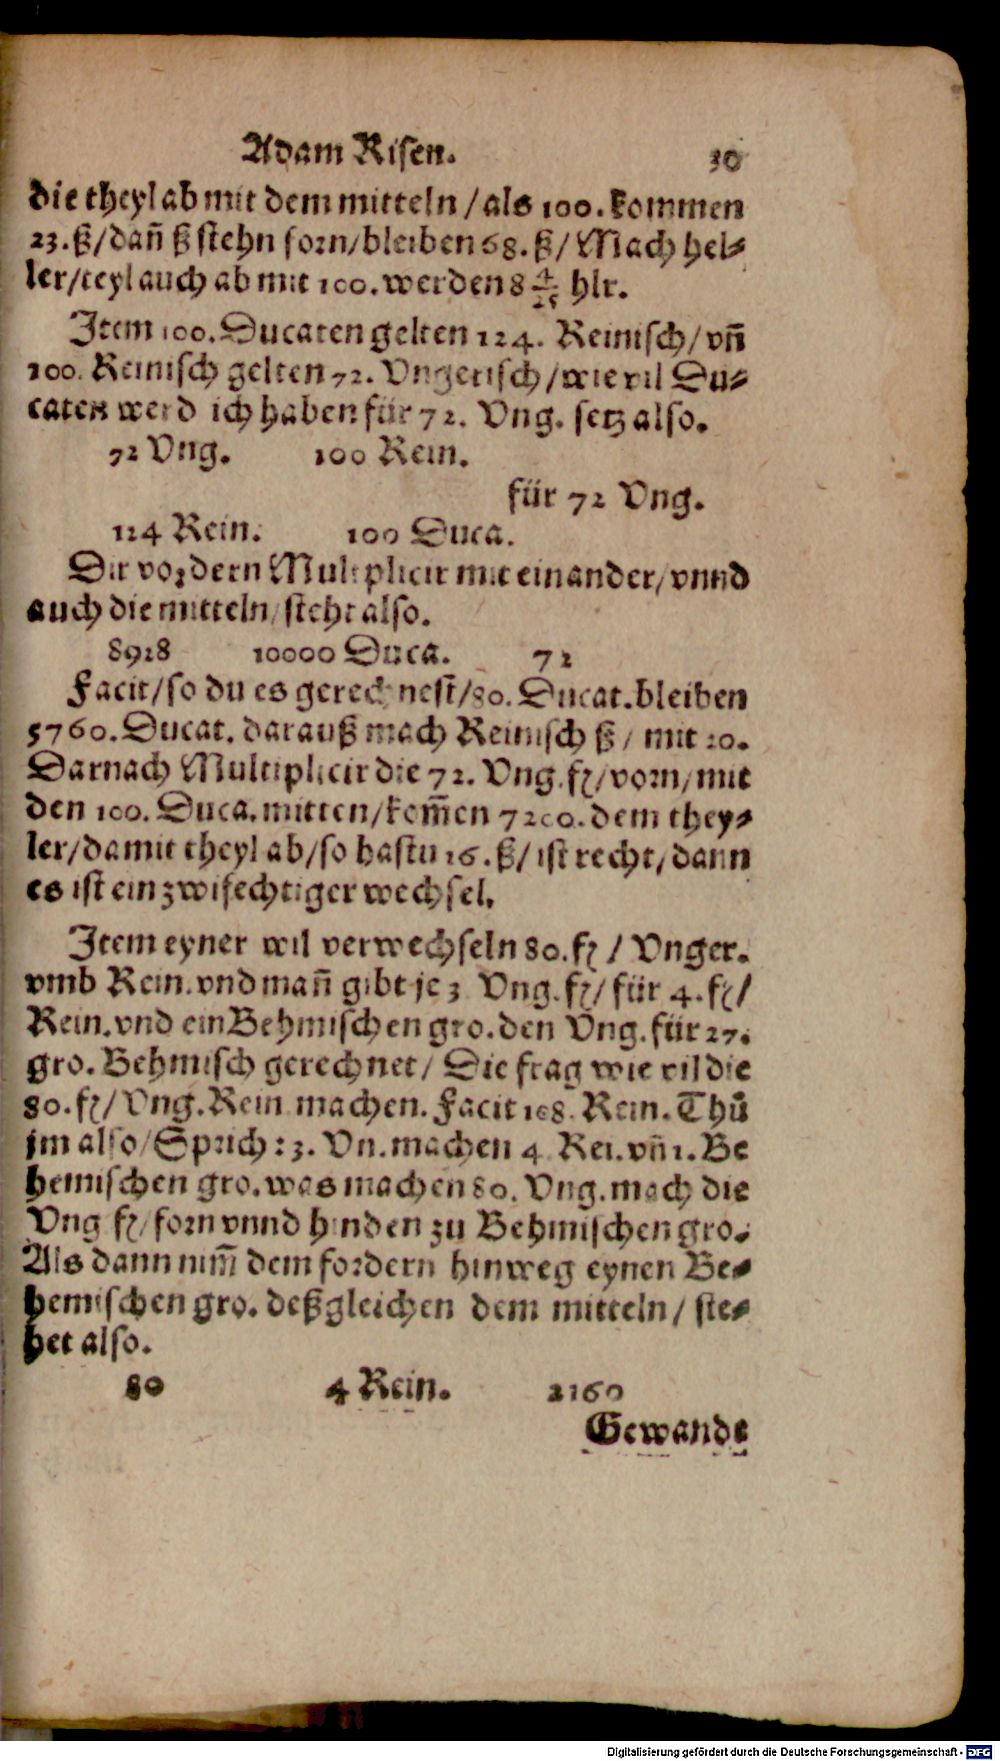 Adam Risen. 30
die theyl ab mit dem mitteln / als 100. kommen
23. ß / dañ ß stehn forn / bleiben 68. ß / Mach hel-
ler / teyl auch ab mit 100. werden 8 4/25 hlr.
Item 100. Ducaten gelten 124. Reinisch / vñ
100. Reinisch gelten 72. Vngerisch / wie vil Du-
caten werd ich haben für 72. Vng. setz also.
72 Vng. 100 Rein.
für 72 Vng.
124 Rein. 100 Duca.
Die vordern Multiplicir mit einander / vnnd
auch die mitteln / steht also.
8928 10000 Duca. 72
Facit / so du es gerechnest / 80. Ducat. bleiben
5760. Ducat. darauß mach Reinisch ß / mit 20.
Darnach Multiplicir die 72. Vng. fl / vorn / mit
den 100. Duca. mitten / kom̃en 7200. dem they-
ler / damit theyl ab / so hastu 16. ß / ist recht / dann
es ist ein zwifechtiger wechsel.
Item eyner wil verwechseln 80. fl / Vnger.
vmb Rein. vnd mañ gibt je 3 Vng. fl / für 4. fl /
Rein. vnd ein Behmischen gro. den Vng. für 27.
gro. Behmisch gerechnet / Die frag wie vil die
80. fl / Vng. Rein machen. Facit 108. Rein. Thů
jm also / Sprich : 3. Vn. machen 4 Rei. vñ 1. Be
hemischen gro. was machen 80. Vng. mach die
Vng fl / forn vnnd hinden zu Behmischen gro.
Als dann nim̃ dem fordern hinweg eynen Be-
hemischen gro. deßgleichen dem mitteln / ste-
het also.
80 4 Rein. 2160
Gewands
Digitalisierung gefördert durch die Deutsche Forschungsgemeinschaft - DFG